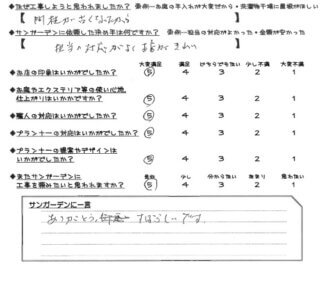 ◆なぜ工事しようと思われましたか? 事例…お庭の手入れが大変だから・洗濯物干場に屋根がほしい
【 門柱が古くなったから 】
◆サンガーデンに依頼した決め手は何ですか? 事例…担当の対応がよかった・金額が安かった
【 担当の対応がよく 】
大変満足 満足 どちらでもない 少し不満 大変不満
◆お店の印象はいかがでしたか? 5 4 3 2 1
◆お庭やエクステリア等の使い心地、
仕上がりはいかがですか? 5 4 3 2 1
◆職人の対応はいかがでしたか? 5 4 3 2 1
◆プランナーの対応はいかがでしたか? 5 4 3 2 1
◆プランナーの提案やデザインは
いかがでしたか? 5 4 3 2 1
◆またサンガーデンに 是非 少し 分からない あまり 思わない
工事を頼みたいと思われますか? 5 4 3 2 1
サンガーデンに一言
ありがとう、 すばらしいです。